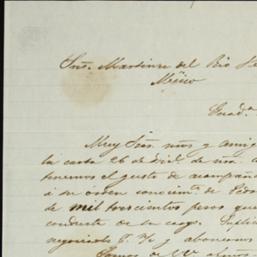 Sres. Martinez del Rio
Méjico
Guad.a
Muy Sres. nros. y amig
la carta 26 de Dic.e de
tenemos el gusto de acompañ
á su orden conocim.to de
de mil trescientos pesos que
conducta de su cargo.
negociarlo y abonarnos
Somos de VV.